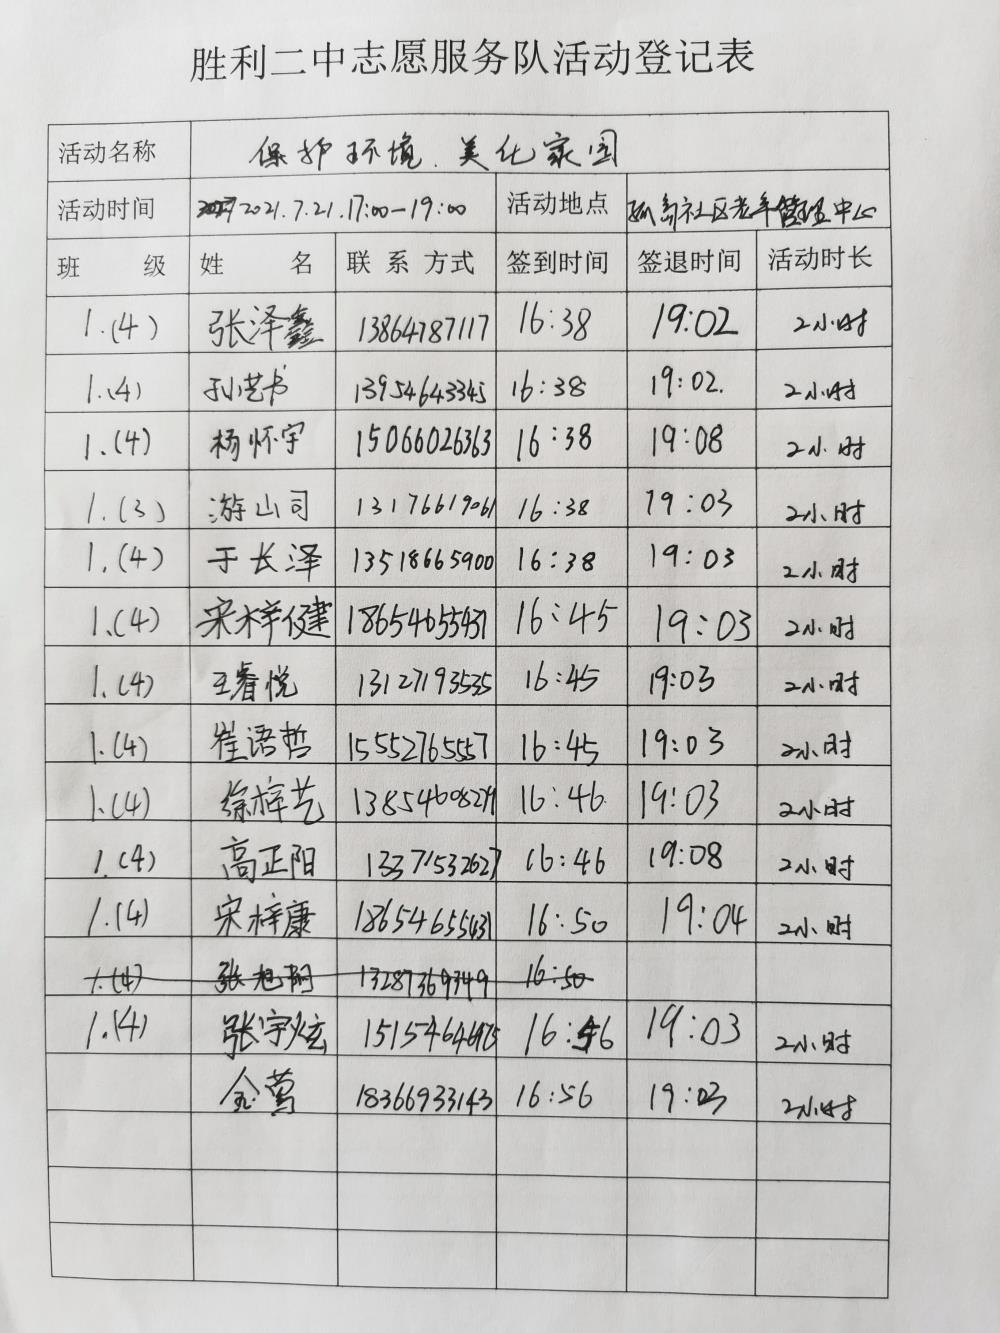 胜利二中志愿服务队活动登记表
活动名称 保护环境、美化家园
活动时间 2021.7.21.17:00-19:00 活动地点 孤岛社区老年管理中心
班 级 姓 名 联系方式 签到时间 签退时间 活动时长
1.(4) 张泽鑫 13864787117 16:38 19:02 2小时
1.(4) 孙艺书 13954643345 16:38 19:02. 2小时
1.(4) 杨怀宇 15066026363 16:38 19:08 2小时
1.(3) 游山司 13176619061 16:38 19:03 2小时
1.(4) 于长泽 13518665900 16:38 19:03 2小时
1.(4) 宋梓健 18654655431 16:45 19:03 2小时
1.(4) 王睿悦 13127193535 16:45 19:03 2小时
1.(4) 崔语哲 15552765557 16:45 19:03 2小时
1.(4) 徐梓艺 16:46 19:03 2小时
1.(4) 高正阳 13371532627 16:46 19:08 2小时
1.(4) 宋梓康 18654655431 16:50 19:04 2小时
1.(4) 张旭阳 13287369349 16:50
1.(4) 张宇炫 16:56 19:03 2小时
金莺 18366933143 16:56 19:03 2小时